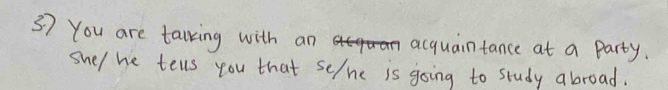 3) You are talking with an acquan acquaintance at a party.
She/he tells you that se/he is going to study abroad.